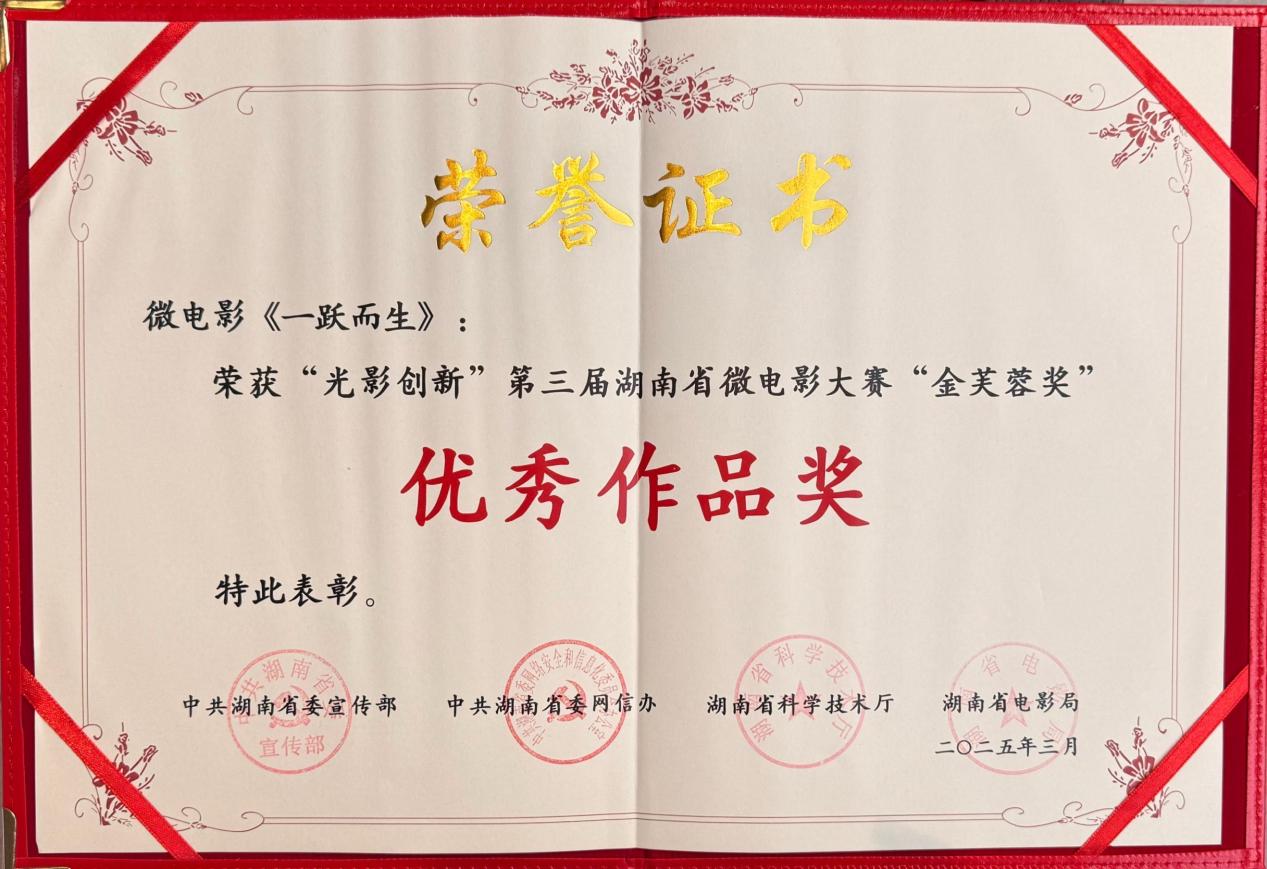 荣誉证书
微电影《一跃而生》：
荣获“光影创新”第三届湖南省微电影大赛“金芙蓉奖”
优秀作品奖
特此表彰。
中共湖南省委宣传部 中共湖南省委网信办 湖南省科学技术厅 湖南省电影局
二〇二五年三月
中共湖南省委
宣传部
湖南省科学技术厅
湖南省电影局